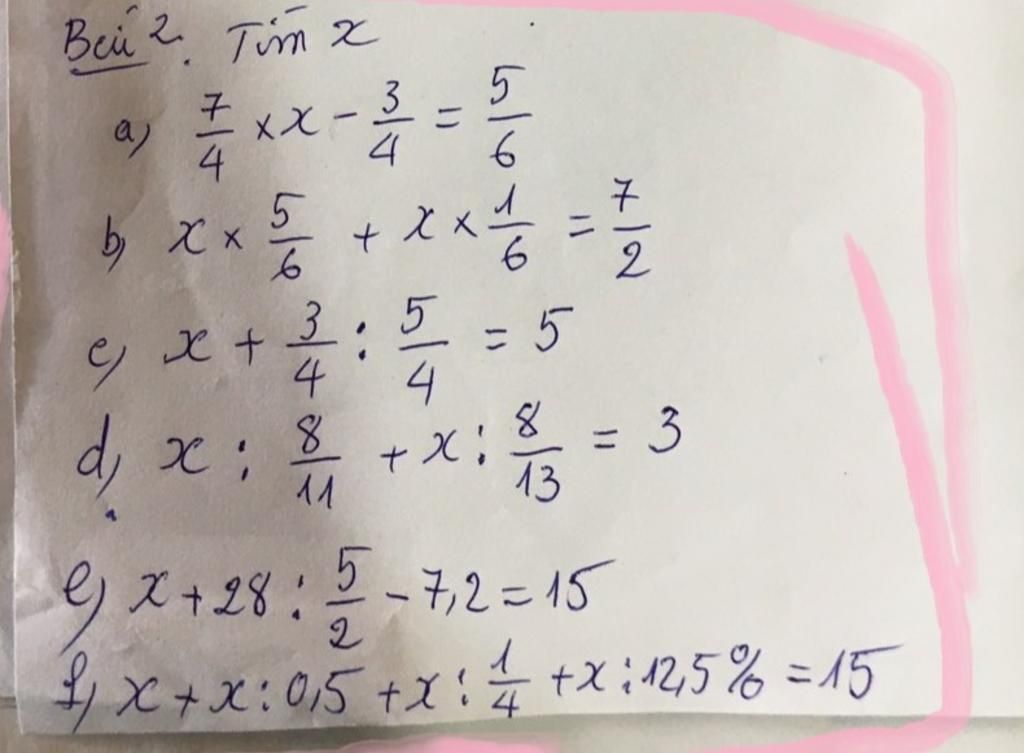 Bài 2. Tìm x
a) 7/4 × x - 3/4 = 5/6
b) x × 5/6 + x × 1/6 = 7/2
c) x + 3/4 : 5/4 = 5
d) x : 8/11 + x : 8/13 = 3
e) x + 28 : 5/2 - 7,2 = 15
f) x + x : 0,5 + x : 1/4 + x : 12,5% = 15